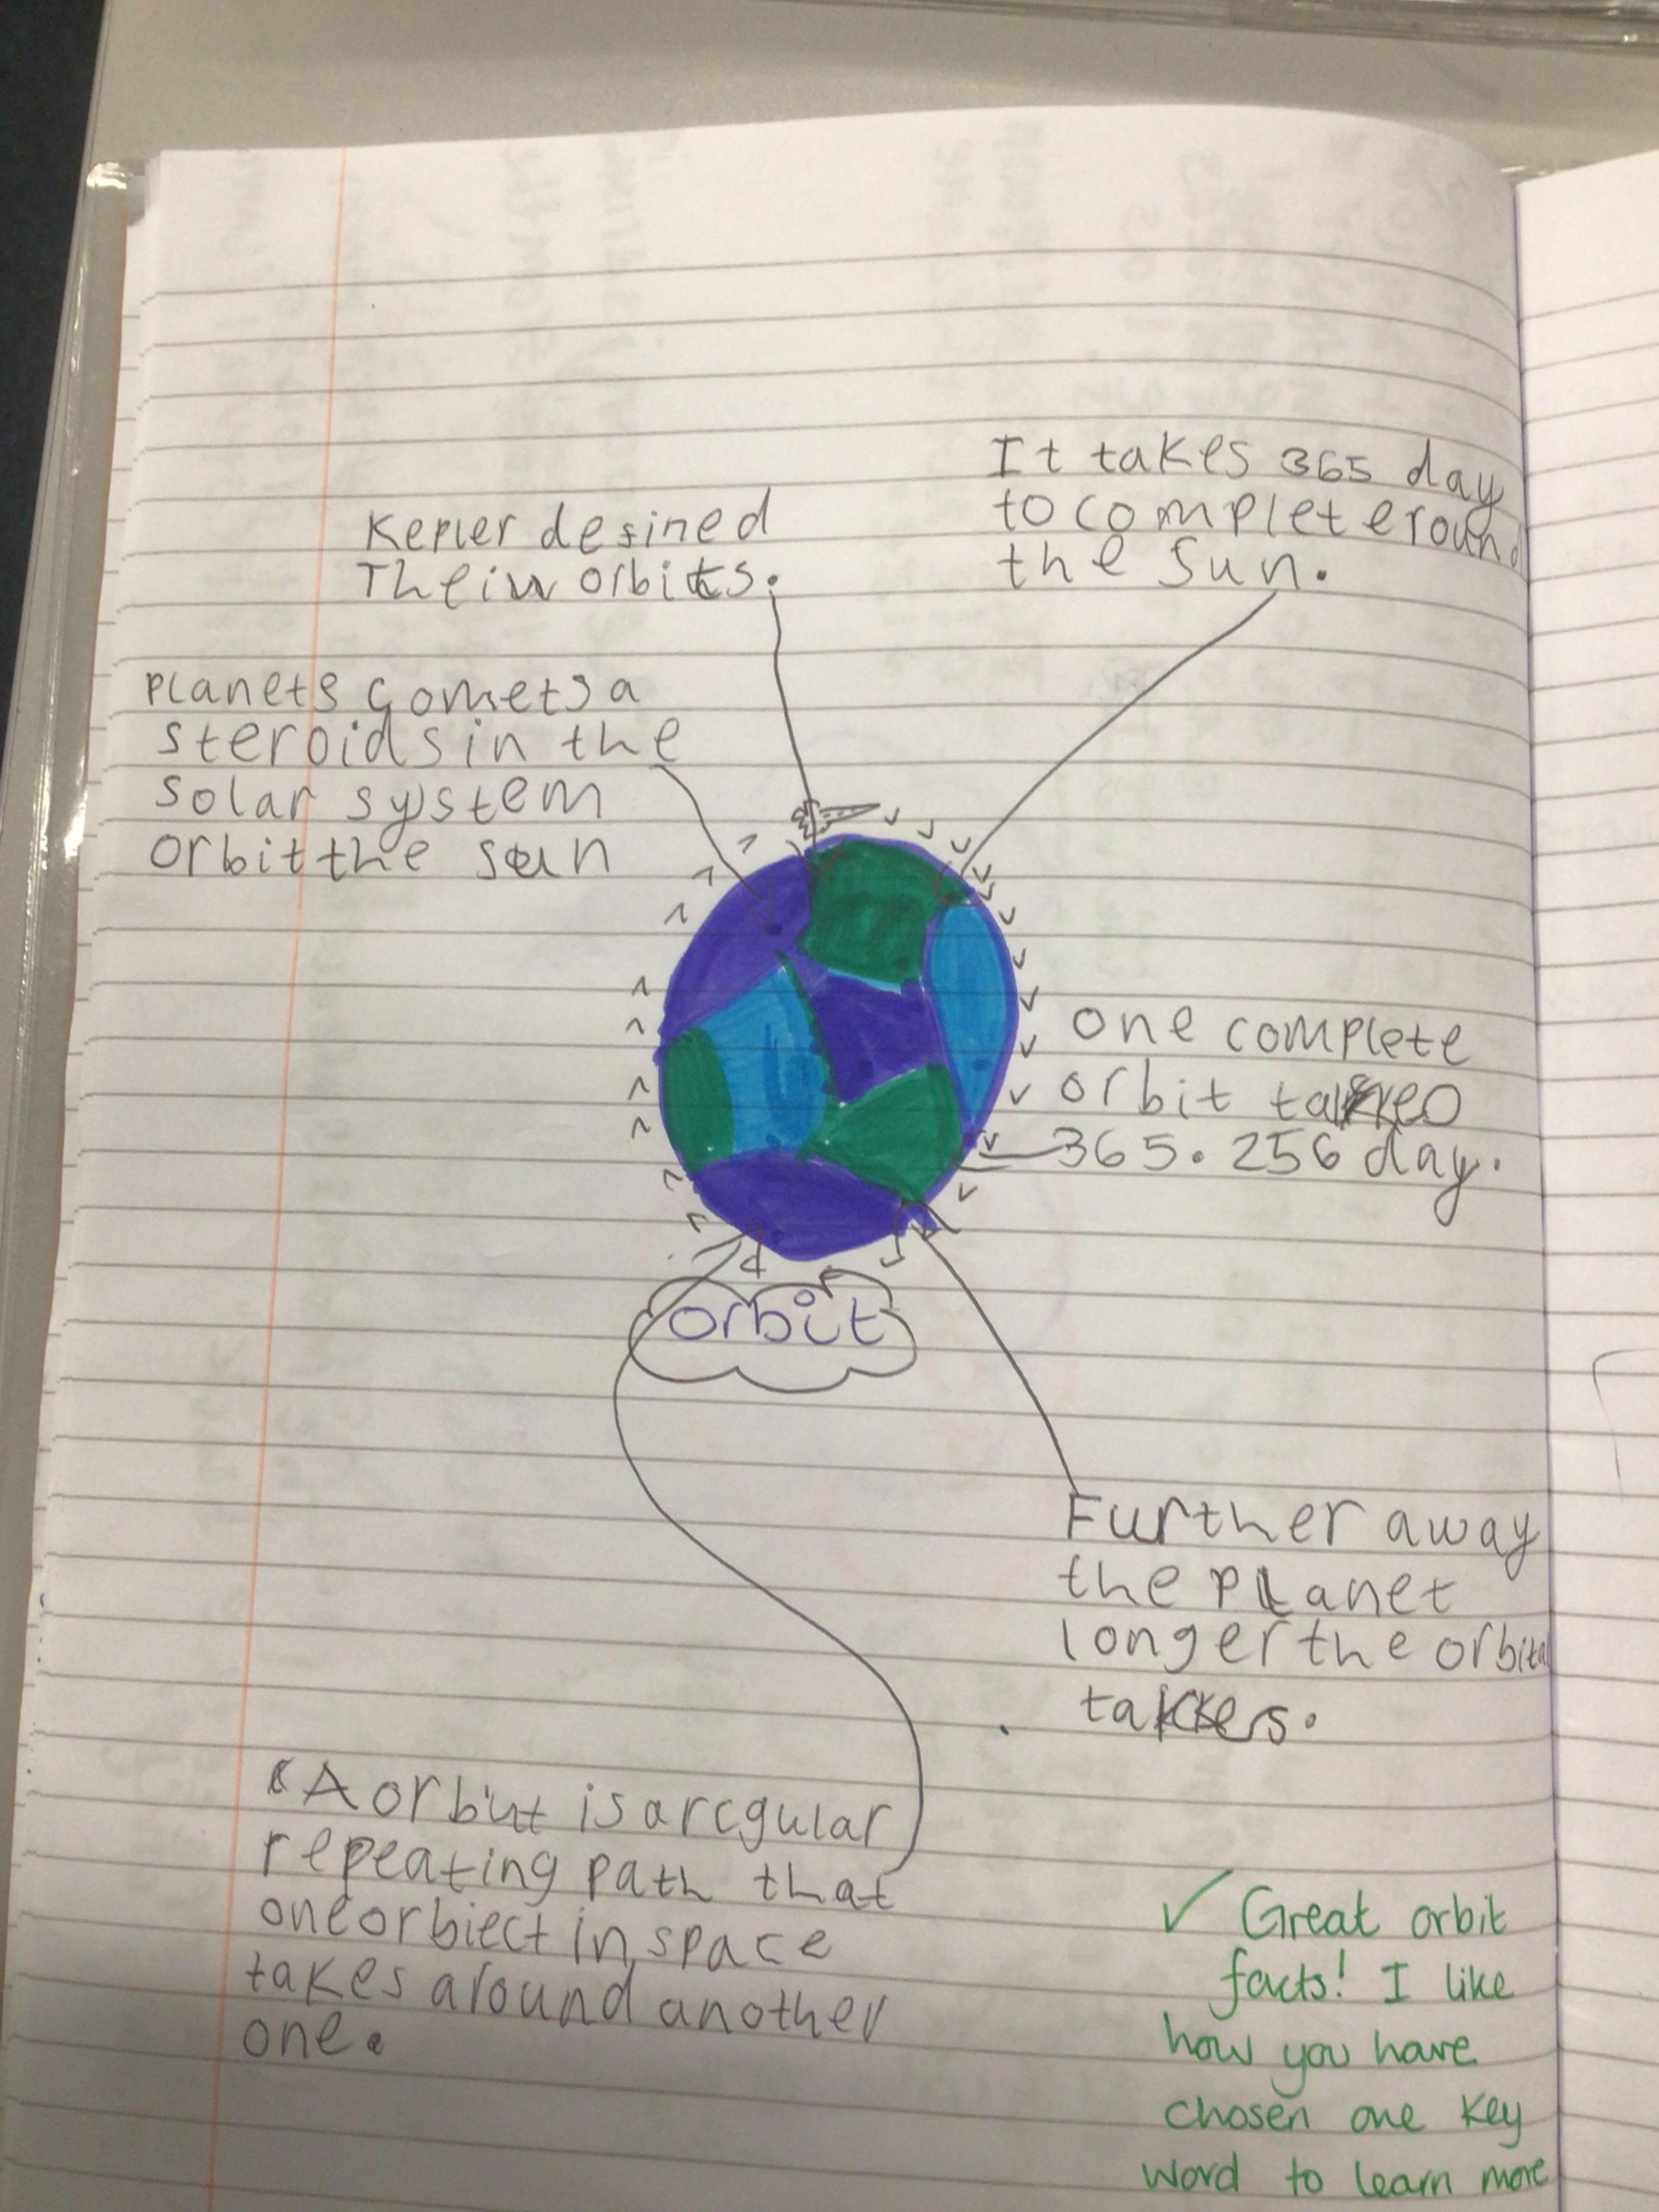 It takes 365 day
to complete roun
the Sun.
Kepler defined
Their orbits.
Planets comets a
steroids in the
solar system
orbit the sun
one complete
orbit takes
365.256 day.
orbit
Further away
the planet
longer the orbital
takes.
A orbut is a regular
repeating path that
one orbiect in space
takes around another
one.
✓ Great orbit
facts! I like
how you have
chosen one key
word to learn more